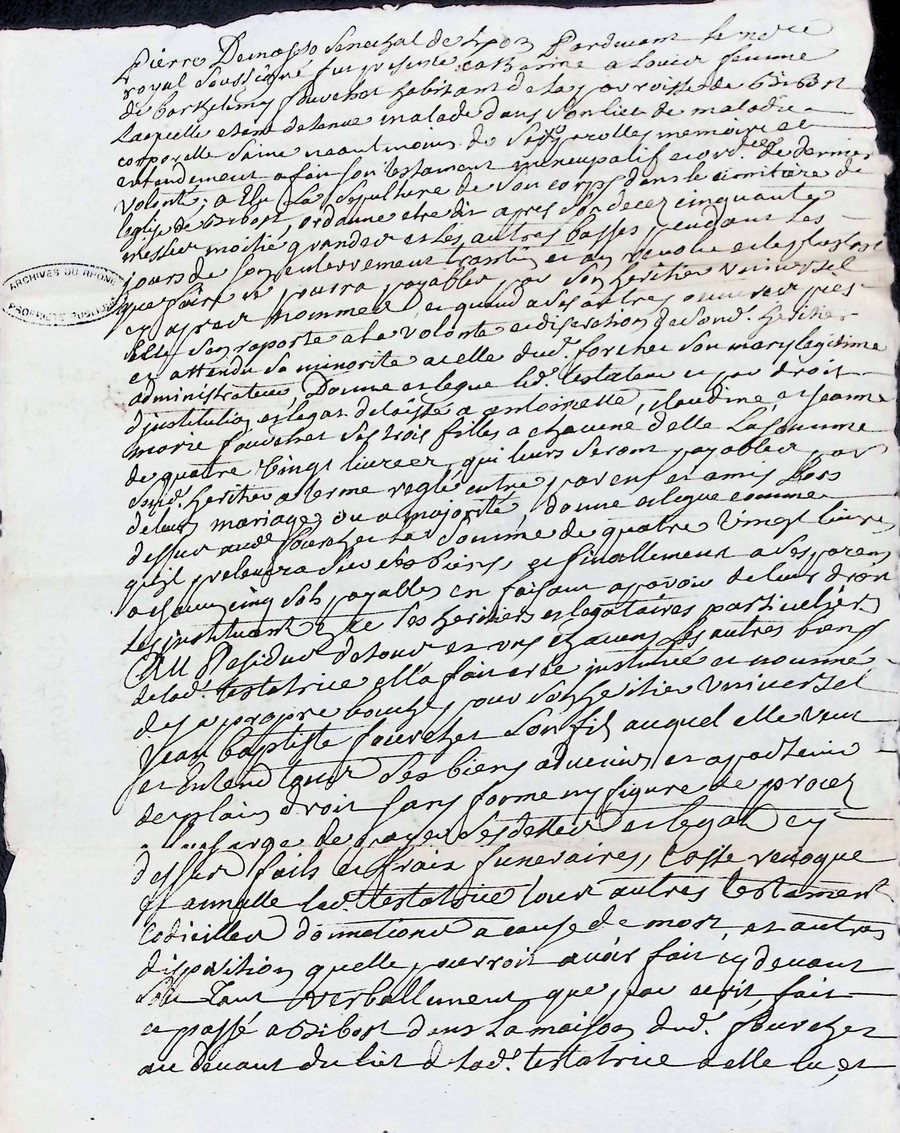 Pierre Senechal de Lyon Pardevant le no.re
royal soussigné fut presente catherine a Louier femme
de barthelemy fourchet habitant de la parroisse de Bibost
Laquelle etant detenue malade dans son lict de maladie
corporelle saine neantmoins de ses memoire et
entendement a fait son testament nuncupatif et ord.ce de derniere
volonté, a Elu La sepulture de son corps dans le cimitiere de
leglise de Bibost, ordonne etre dit apres son decez cinquante
messes moitié grandes et les autres basses pendant les
jours de son enterrement trantin et an revolu et le plustost
que faire se pourra payables par son heritier universel
cy apres nommé, et quand a ses autres œuvres pies
elle sen raporte a la volonté et discretion de sond. heritier
et attendu sa minorité a celle dud. forchet son mary legitime
administrateur, Donne et legue lad. testatrice et par droit
dinstitution et legat delaisse a antoinette, claudine et jeanne
marie fourchet ses trois filles a chacune delle La somme
de quatre vingt livres, qui leurs seront payables par
sond. heritier a terme reglé entre parens et amis lors
de leur mariage ou a majorité, donne et legue comme
dessus aud. fourchet La somme de quatre vingt livres
quil prelevra sur ses biens, et finallement a ses parens
a chacun cinq sols payables en faisant aparoir de leur droit
Les instituant ses heritiers et legataires particuliers
Au Residu de tous et uns chacuns Les autres biens
de lad. testatrice ella fait cree institué et nommé
de sa propre bouche pour son heritier Universel
jean baptiste fourchet son fils auquel elle veut
et Entend tous ses biens advenir et appartenir
de plain droit sans forme ny figure de procez
a la charge de payer ses dettes et legats cy
dessus faits et fraix funeraires, casse revoque
et annulle lad. testatrice tous autres testament
codicilles donnations a cause de mort et autres
disposition quelle pourroit avoir fait cy devant
soit Tant verballement que par ecrit, fait
et passé a Bibost dans La maison dud. fourchet
au devant du lict de lad. testatrice a elle lu, et
ARCHIVES DU RHÔNE
PROPRIÉTÉ PUBLIQUE